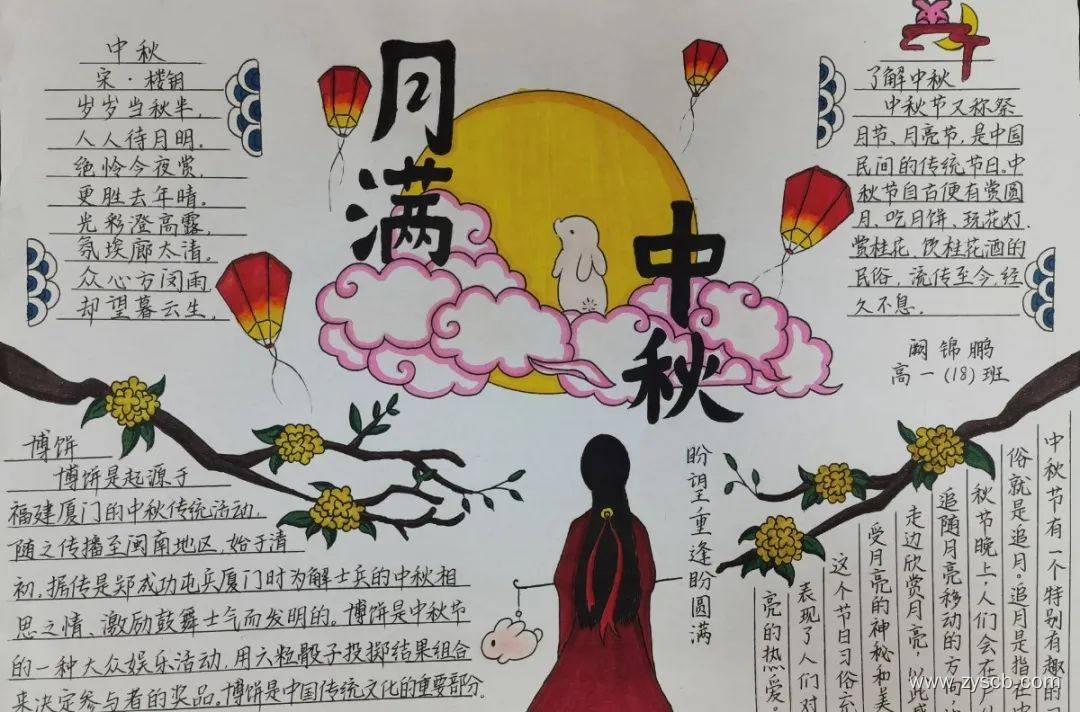 中秋
宋·楼钥
岁岁当秋半，
人人待月明。
绝怜今夜赏，
更胜去年晴。
光彩澄高露，
氛埃廓太清。
众心方闵雨
却望暮云生。
月
满
中
秋
了解中秋
中秋节又称祭
月节、月亮节，是中国
民间的传统节日。中
秋节自古便有赏圆
月、吃月饼、玩花灯、
赏桂花、饮桂花酒的
民俗，流传至今，经
久不息。
阙锦鹏
高一(18)班
博饼
博饼是起源于
福建厦门的中秋传统活动，
随之传播至闽南地区，始于清
初，据传是郑成功屯兵厦门时为解士兵的中秋相
思之情、激励鼓舞士气而发明的。博饼是中秋节
的一种大众娱乐活动，用六粒骰子投掷结果组合
来决定参与者的奖品。博饼是中国传统文化的重要部分.
盼
重逢盼圆满
中秋节有一个特别有趣的
俗就是追月。追月是指在中
秋节晚上，人们会在
追随月亮移动的方向，
走边欣赏月亮，以此感
受月亮的神秘和美
这个节日习俗充
表现了人们对
亮的热爱。
www.zyscb.com